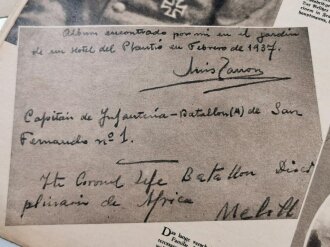 Album encontrado por mi en el jardin
de un Hotel del Plantio en Febrero de 1937.
Luis Zanon
Capitán de Infanteria-Batallon (A) de San
Fernando nº 1.
Tte Coronel Jefe Batallon Disci
plinario de Africa
Melill
Das lange
Familie